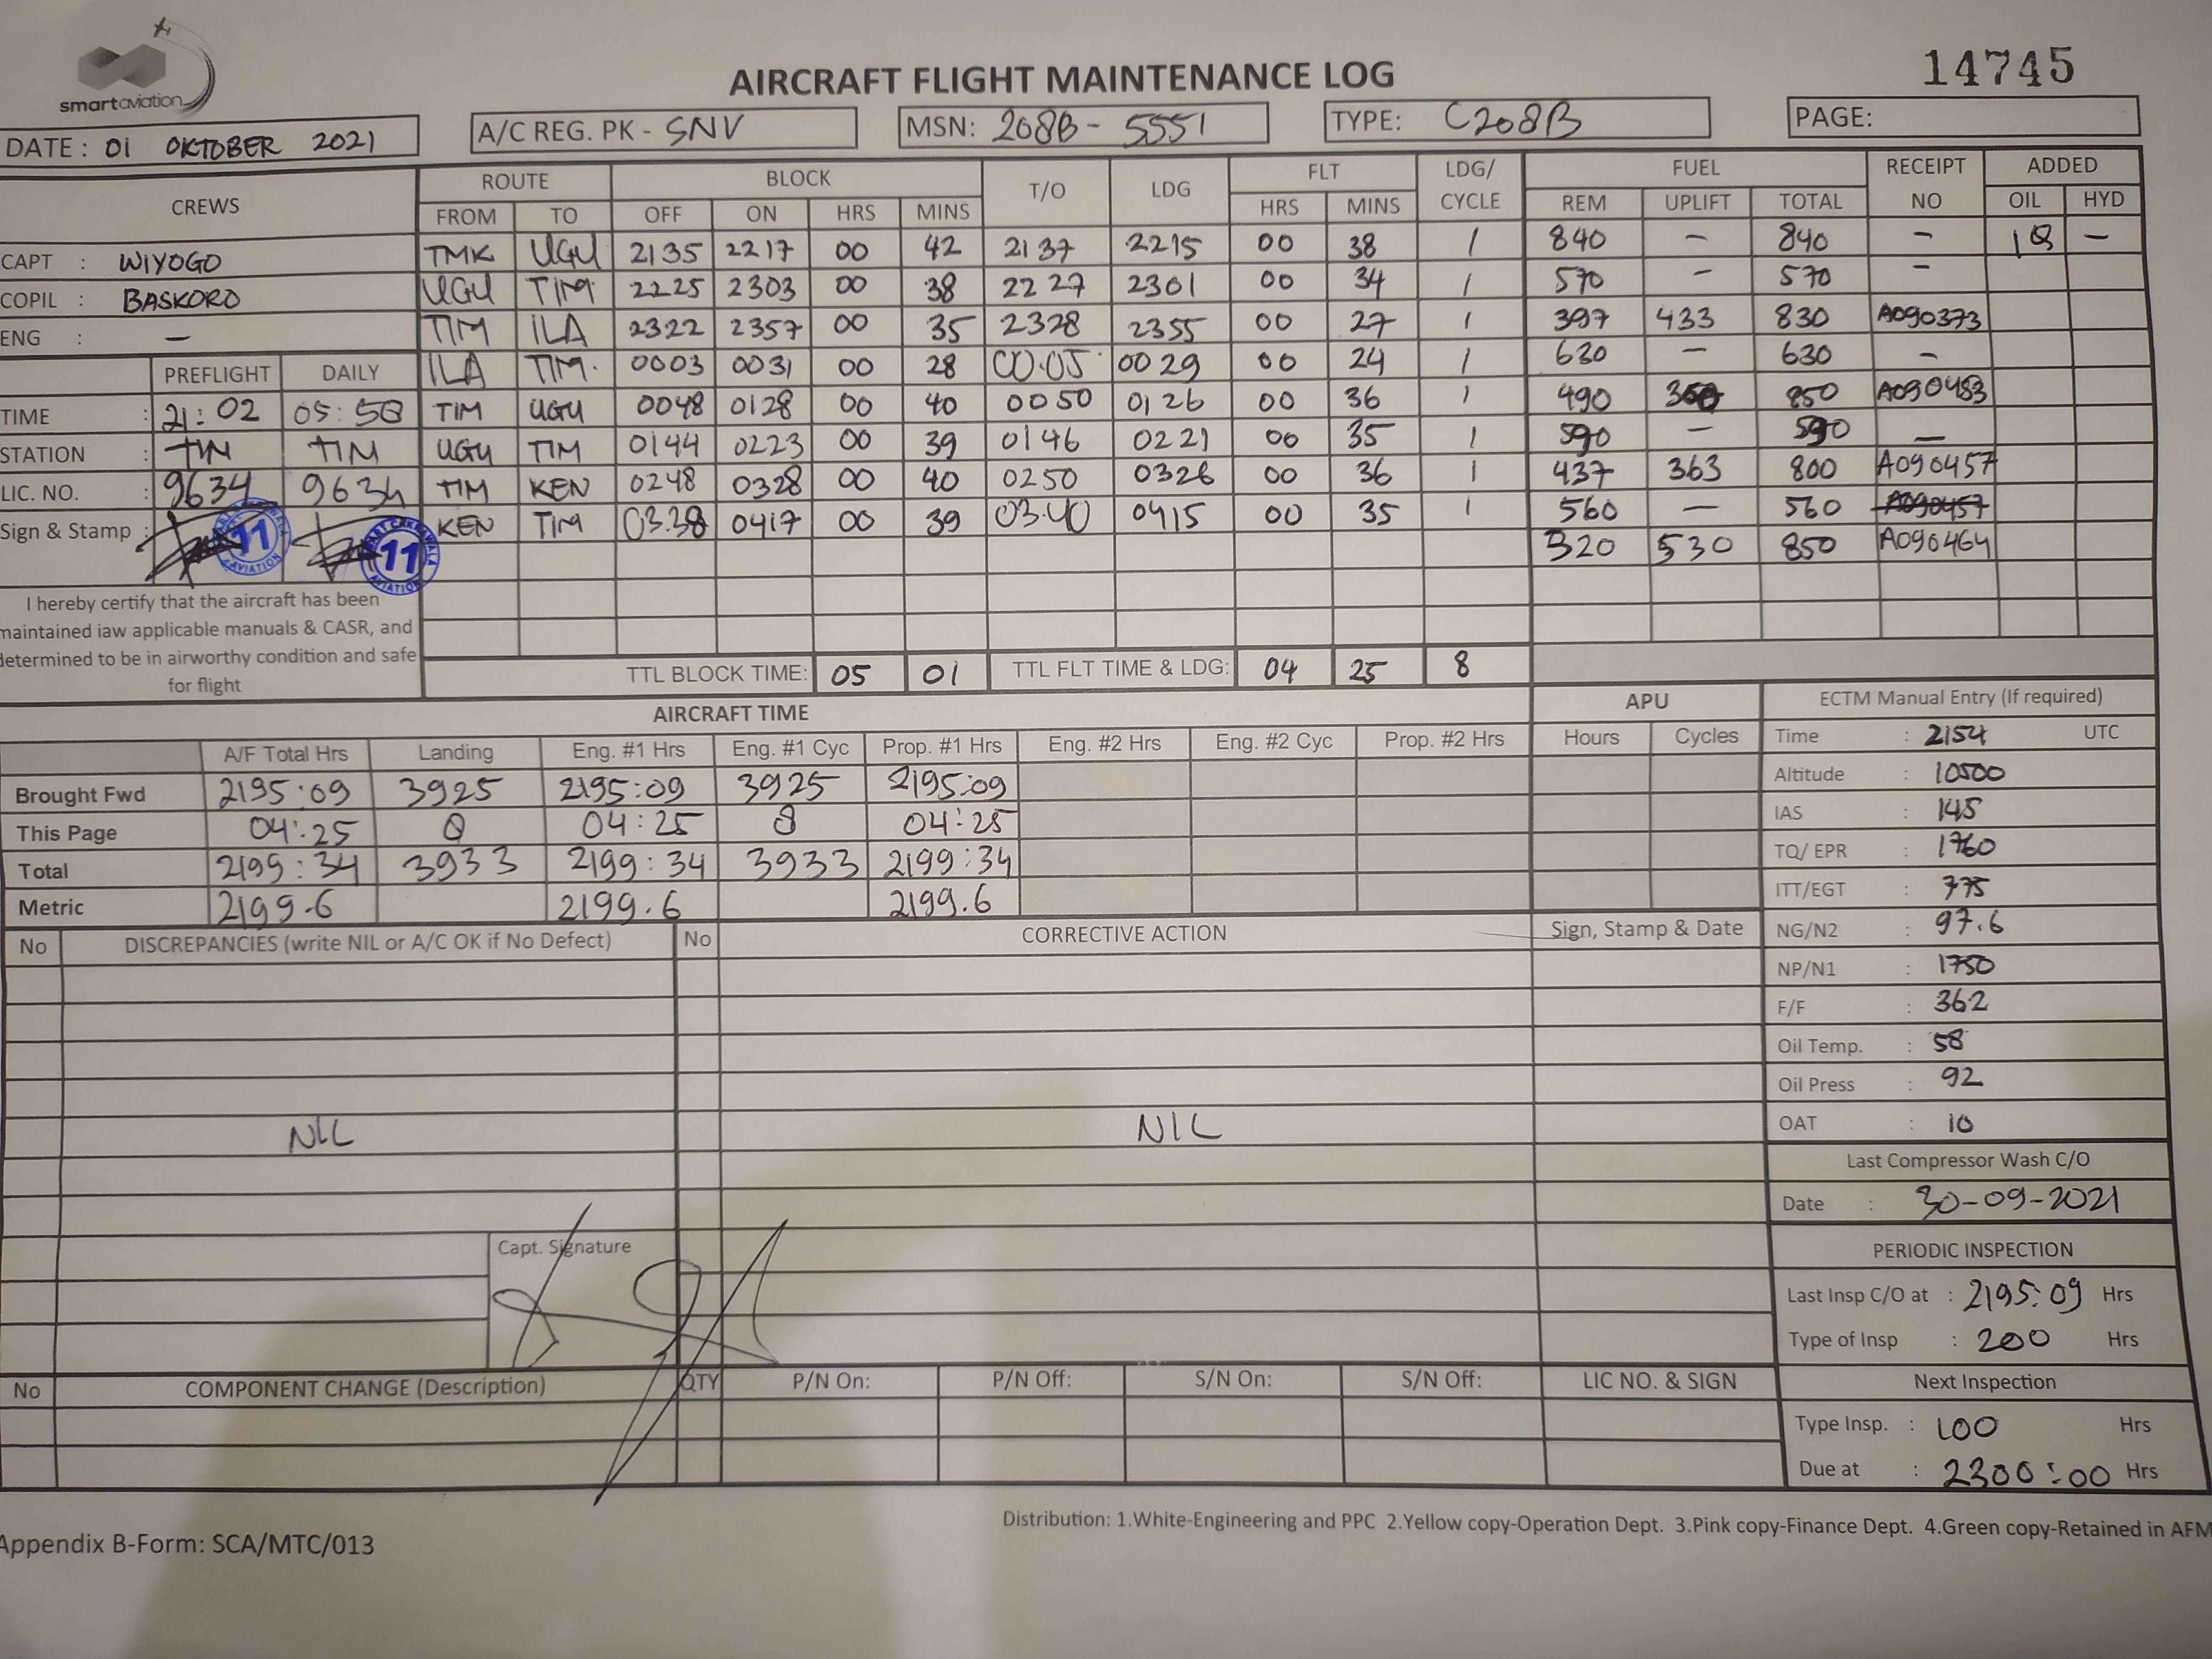 smartaviation
AIRCRAFT FLIGHT MAINTENANCE LOG
14745
DATE : 01 OKTOBER 2021
A/C REG. PK - SNV
MSN: 208B - 5551
TYPE: C208B
PAGE:
CREWS ROUTE BLOCK T/O LDG FLT LDG/ CYCLE FUEL RECEIPT NO ADDED
FROM TO OFF ON HRS MINS HRS MINS REM UPLIFT TOTAL OIL HYD
CAPT : WIYOGO
COPIL : BASKORO
ENG : —
TMK UGU 2135 2217 00 42 2137 2215 00 38 1 840 — 840 — 1Q —
UGU TIM 2225 2303 00 38 2227 2301 00 34 1 570 — 570 —
TIM ILA 2322 2357 00 35 2328 2355 00 27 1 397 433 830 A090373
ILA TIM. 0003 0031 00 28 00.05 0029 00 24 1 630 — 630 —
TIM UGU 0048 0128 00 40 0050 0126 00 36 1 490 850 A090483
UGU TIM 0144 0223 00 39 0146 0221 00 35 1 590 — 590 —
TIM KEN 0248 0328 00 40 0250 0326 00 36 1 437 363 800 A090457
KEN TIM 03.38 0417 00 39 03.40 0415 00 35 1 560 — 560 A090457
320 530 850 A090464
PREFLIGHT DAILY
TIME : 21:02 05:50
STATION : TIM TIM
LIC. NO. : 9634 9634
Sign & Stamp :
11 AVIATION
11 AVIATION
I hereby certify that the aircraft has been
maintained iaw applicable manuals & CASR, and
determined to be in airworthy condition and safe
for flight
TTL BLOCK TIME: 05 01 TTL FLT TIME & LDG: 04 25 8
AIRCRAFT TIME
APU
A/F Total Hrs Landing Eng. #1 Hrs Eng. #1 Cyc Prop. #1 Hrs Eng. #2 Hrs Eng. #2 Cyc Prop. #2 Hrs Hours Cycles
Brought Fwd 2195:09 3925 2195:09 3925 2195:09
This Page 04:25 8 04:25 8 04:25
Total 2199:34 3933 2199:34 3933 2199:34
Metric 2199.6 2199.6 2199.6
ECTM Manual Entry (If required)
Time : 2154 UTC
Altitude : 10500
IAS : 145
TQ/ EPR : 1760
ITT/EGT : 775
NG/N2 : 97.6
NP/N1 : 1750
F/F : 362
Oil Temp. : 58
Oil Press : 92
OAT : 10
Last Compressor Wash C/O
Date : 30-09-2021
PERIODIC INSPECTION
Last Insp C/O at : 2195:09 Hrs
Type of Insp : 200 Hrs
Next Inspection
Type Insp. : 100 Hrs
Due at : 2300:00 Hrs
No DISCREPANCIES (write NIL or A/C OK if No Defect) No CORRECTIVE ACTION Sign, Stamp & Date
NIL NIL
Capt. Signature
No COMPONENT CHANGE (Description) QTY P/N On: P/N Off: S/N On: S/N Off: LIC NO. & SIGN
Distribution: 1.White-Engineering and PPC 2.Yellow copy-Operation Dept. 3.Pink copy-Finance Dept. 4.Green copy-Retained in AFM
Appendix B-Form: SCA/MTC/013